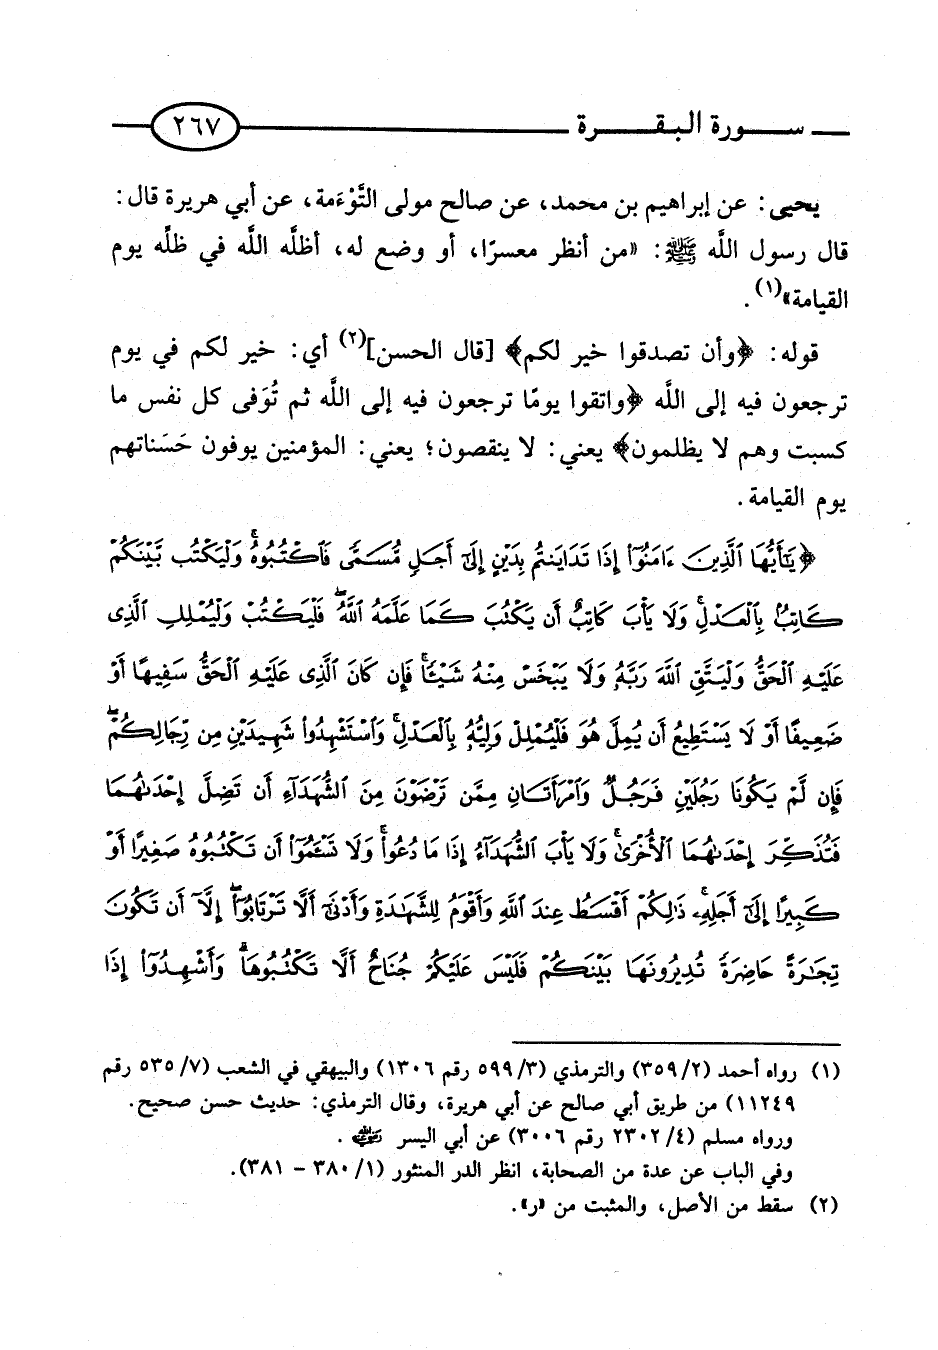 سورة البقرة ٢٦٧
يحيى: عن إبراهيم بن محمد، عن صالح مولى التَّوْءَمة، عن أبي هريرة قال:
قال رسول اللَّه ﷺ: «من أنظر معسرًا، أو وضع له، أظلَّه اللَّه في ظلَّه يوم
القيامة»(١).
قوله: ﴿وأن تصدقوا خير لكم﴾ [قال الحسن](٢) أي: خير لكم في يوم
ترجعون فيه إلى اللَّه ﴿واتقوا يومًا ترجعون فيه إلى اللَّه ثم تُوَفى كل نفس ما
كسبت وهم لا يظلمون﴾ يعني: لا ينقصون؛ يعني: المؤمنين يوفون حَسَناتهم
يوم القيامة.
﴿يَٰٓأَيُّهَا ٱلَّذِينَ ءَامَنُوٓا۟ إِذَا تَدَايَنتُم بِدَيْنٍ إِلَىٰٓ أَجَلٍ مُّسَمًّى فَٱكْتُبُوهُ ۚ وَلْيَكْتُب بَّيْنَكُمْ
كَاتِبٌۢ بِٱلْعَدْلِ ۚ وَلَا يَأْبَ كَاتِبٌ أَن يَكْتُبَ كَمَا عَلَّمَهُ ٱللَّهُ ۚ فَلْيَكْتُبْ وَلْيُمْلِلِ ٱلَّذِى
عَلَيْهِ ٱلْحَقُّ وَلْيَتَّقِ ٱللَّهَ رَبَّهُۥ وَلَا يَبْخَسْ مِنْهُ شَيْـًٔا ۚ فَإِن كَانَ ٱلَّذِى عَلَيْهِ ٱلْحَقُّ سَفِيهًا أَوْ
ضَعِيفًا أَوْ لَا يَسْتَطِيعُ أَن يُمِلَّ هُوَ فَلْيُمْلِلْ وَلِيُّهُۥ بِٱلْعَدْلِ ۚ وَٱسْتَشْهِدُوا۟ شَهِيدَيْنِ مِن رِّجَالِكُمْ ۖ
فَإِن لَّمْ يَكُونَا رَجُلَيْنِ فَرَجُلٌ وَٱمْرَأَتَانِ مِمَّن تَرْضَوْنَ مِنَ ٱلشُّهَدَآءِ أَن تَضِلَّ إِحْدَىٰهُمَا
فَتُذَكِّرَ إِحْدَىٰهُمَا ٱلْأُخْرَىٰ ۚ وَلَا يَأْبَ ٱلشُّهَدَآءُ إِذَا مَا دُعُوا۟ ۚ وَلَا تَسْـَٔمُوٓا۟ أَن تَكْتُبُوهُ صَغِيرًا أَوْ
كَبِيرًا إِلَىٰٓ أَجَلِهِۦ ۚ ذَٰلِكُمْ أَقْسَطُ عِندَ ٱللَّهِ وَأَقْوَمُ لِلشَّهَٰدَةِ وَأَدْنَىٰٓ أَلَّا تَرْتَابُوٓا۟ ۖ إِلَّآ أَن تَكُونَ
تِجَٰرَةً حَاضِرَةً تُدِيرُونَهَا بَيْنَكُمْ فَلَيْسَ عَلَيْكُمْ جُنَاحٌ أَلَّا تَكْتُبُوهَا ۗ وَأَشْهِدُوٓا۟ إِذَا
(١) رواه أحمد (٣٥٩/٢) والترمذي (٥٩٩/٣ رقم ١٣٠٦) والبيهقي في الشعب (٥٣٥/٧ رقم
١١٢٤٩) من طريق أبي صالح عن أبي هريرة، وقال الترمذي: حديث حسن صحيح.
ورواه مسلم (٢٣٠٢/٤ رقم ٣٠٠٦) عن أبي اليسر رضي الله عنه.
وفي الباب عن عدة من الصحابة، انظر الدر المنثور (٣٨٠/١ - ٣٨١).
(٢) سقط من الأصل، والمثبت من «ر».